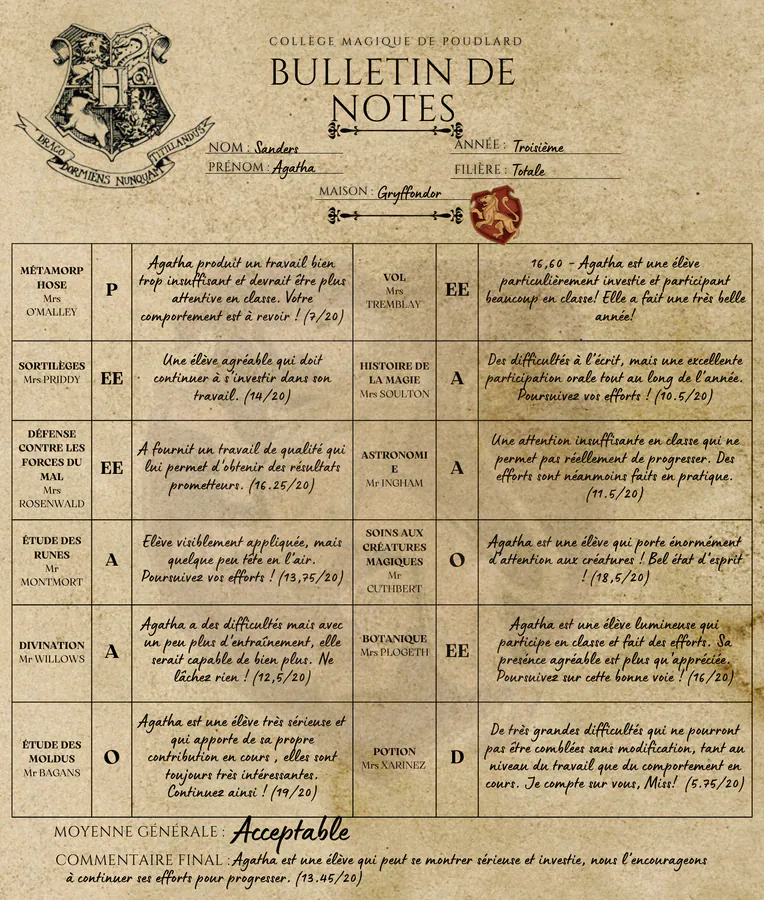 COLLÈGE MAGIQUE DE POUDLARD
BULLETIN DE
NOTES
DRACO
DORMIENS NUNQUAM
TITILLANDUS
NOM : Sanders
ANNÉE : Troisième
PRÉNOM : Agatha
FILIÈRE : Totale
MAISON : Gryffondor
MÉTAMORP
HOSE
Mrs
O'MALLEY
P
Agatha produit un travail bien
trop insuffisant et devrait être plus
attentive en classe. Votre
comportement est à revoir ! (7/20)
VOL
Mrs
TREMBLAY
EE
16,60 - Agatha est une élève
particulièrement investie et participant
beaucoup en classe! Elle a fait une très belle
année!
SORTILÈGES
Mrs PRIDDY
EE
Une élève agréable qui doit
continuer à s'investir dans son
travail. (14/20)
HISTOIRE DE
LA MAGIE
Mrs SOULTON
A
Des difficultés à l'écrit, mais une excellente
participation orale tout au long de l'année.
Poursuivez vos efforts ! (10.5/20)
DÉFENSE
CONTRE LES
FORCES DU
MAL
Mrs
ROSENWALD
EE
A fournit un travail de qualité qui
lui permet d'obtenir des résultats
prometteurs. (16.25/20)
ASTRONOMI
E
Mr INGHAM
A
Une attention insuffisante en classe qui ne
permet pas réellement de progresser. Des
efforts sont néanmoins faits en pratique.
(11.5/20)
ÉTUDE DES
RUNES
Mr
MONTMORT
A
Elève visiblement appliquée, mais
quelque peu tête en l'air.
Poursuivez vos efforts ! (13,75/20)
SOINS AUX
CRÉATURES
MAGIQUES
Mr
CUTHBERT
O
Agatha est une élève qui porte énormément
d'attention aux créatures ! Bel état d'esprit
! (18,5/20)
DIVINATION
Mr WILLOWS
A
Agatha a des difficultés mais avec
un peu plus d'entraînement, elle
serait capable de bien plus. Ne
lâchez rien ! (12,5/20)
BOTANIQUE
Mrs PLOGETH
EE
Agatha est une élève lumineuse qui
participe en classe et fait des efforts. Sa
présence agréable est plus qu'appréciée.
Poursuivez sur cette bonne voie ! (16/20)
ÉTUDE DES
MOLDUS
Mr BAGANS
O
Agatha est une élève très sérieuse et
qui apporte de sa propre
contribution en cours , elles sont
toujours très intéressantes.
Continuez ainsi ! (19/20)
POTION
Mrs XARINEZ
D
De très grandes difficultés qui ne pourront
pas être comblées sans modification, tant au
niveau du travail que du comportement en
cours. Je compte sur vous, Miss! (5.75/20)
MOYENNE GÉNÉRALE : Acceptable
COMMENTAIRE FINAL : Agatha est une élève qui peut se montrer sérieuse et investie, nous l'encourageons
à continuer ses efforts pour progresser. (13.45/20)